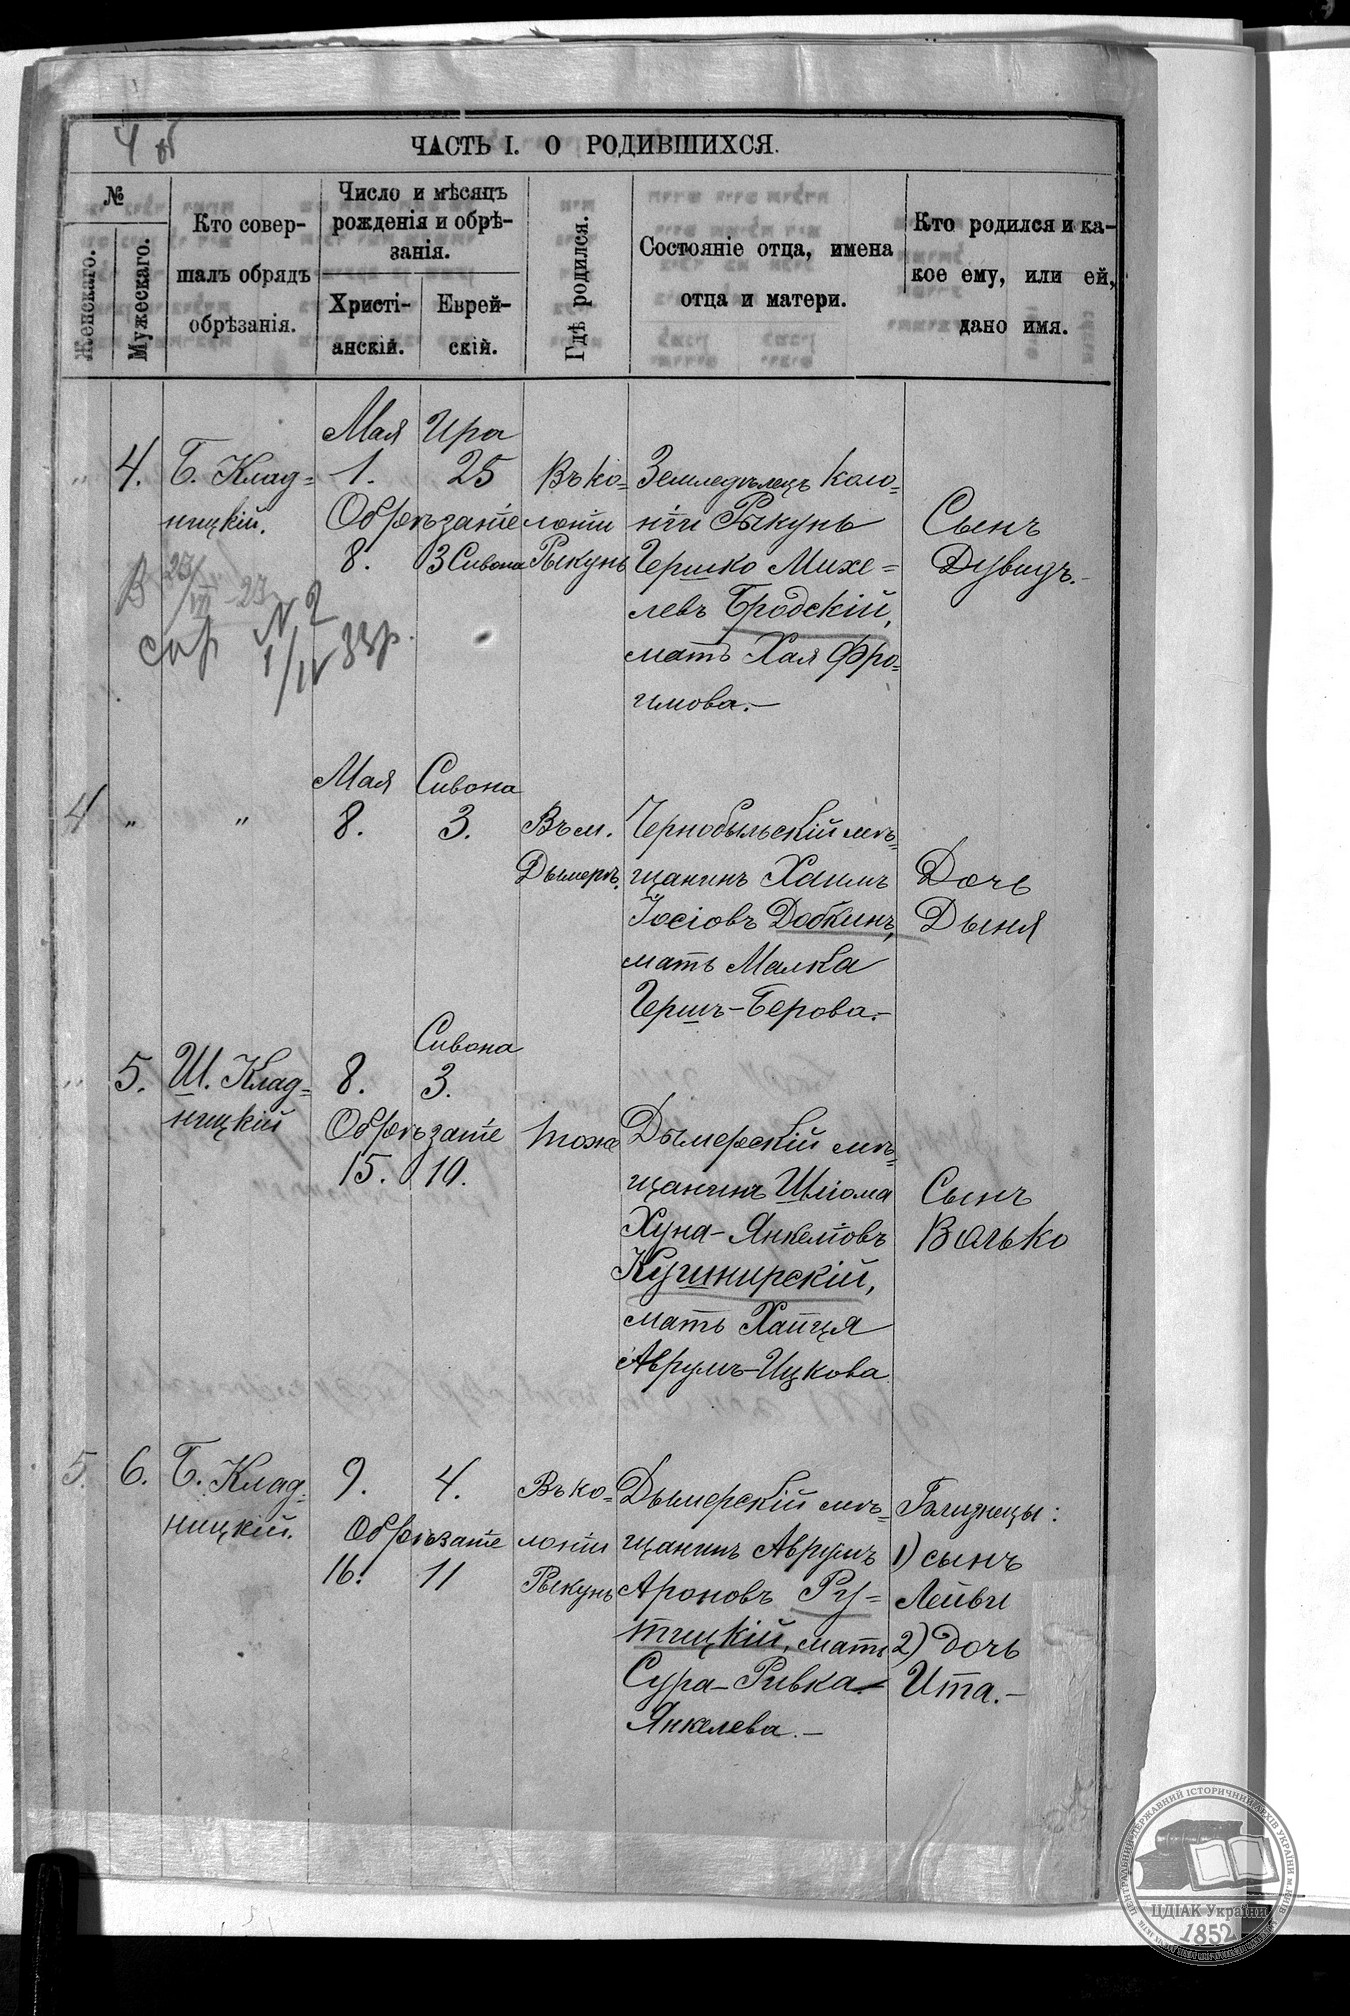 4 об
ЧАСТЬ I. О РОДИВШИХСЯ.
№
Женскаго.
Мужескаго.
Кто совер-
шалъ обрядъ
обрѣзанія.
Число и мѣсяцъ
рожденія и обрѣ-
занія.
Христі-
анскій.
Еврей-
скій.
Гдѣ родился.
Состояніе отца, имена
отца и матери.
Кто родился и ка-
кое ему, или ей,
дано имя.
"
4.
Б. Клад=
ницкій.
Мая Ира
1. 25
Обрѣзаніе
8. 3 Сивона
Въ ко=
лоніи
Рыкунь
Земледѣлецъ коло=
ніи Рыкунь
Гершко Михе=
левъ Бродскій,
мать Хая Фро=
имова.—
Сынъ
Дувидъ.-
В 23/VII-23
спр N 2
1/IV 33р.
4 " "
Мая Сивона
8. 3.
Въ м.
Дымерѣ.
Чернобыльскій мѣ=
щанинъ Хаимъ
Іосіовъ Добкинъ,
мать Малка
Гершъ-Берова.-
Дочь
Дыня
"
5.
Ш. Клад=
ницкій
Сивона
8. 3.
Обрѣзаніе
15. 10.
тоже
Дымерскій мѣ=
щанинъ Шліома
Хуна-Янкеліовъ
Кушнирскій,
мать Хайця
Аврумъ-Ицкова
Сынъ
Волько
5. 6.
Б. Клад=
ницкій.
9. 4.
Обрѣзаніе
16. 11
Въ ко=
лоніи
Рыкунь
Дымерскій мѣ=
щанинъ Аврумъ
Ароновъ Ру=
тицкій, мать
Сура-Ривка
Янкелева.—
Близнецы:
1) сынъ
Лейви
2) дочь
Ита.—
ЦЕНТРАЛЬНИЙ ДЕРЖАВНИЙ ІСТОРИЧНИЙ АРХІВ УКРАЇНИ, М.КИЇВ
ЦДІАК України
1852